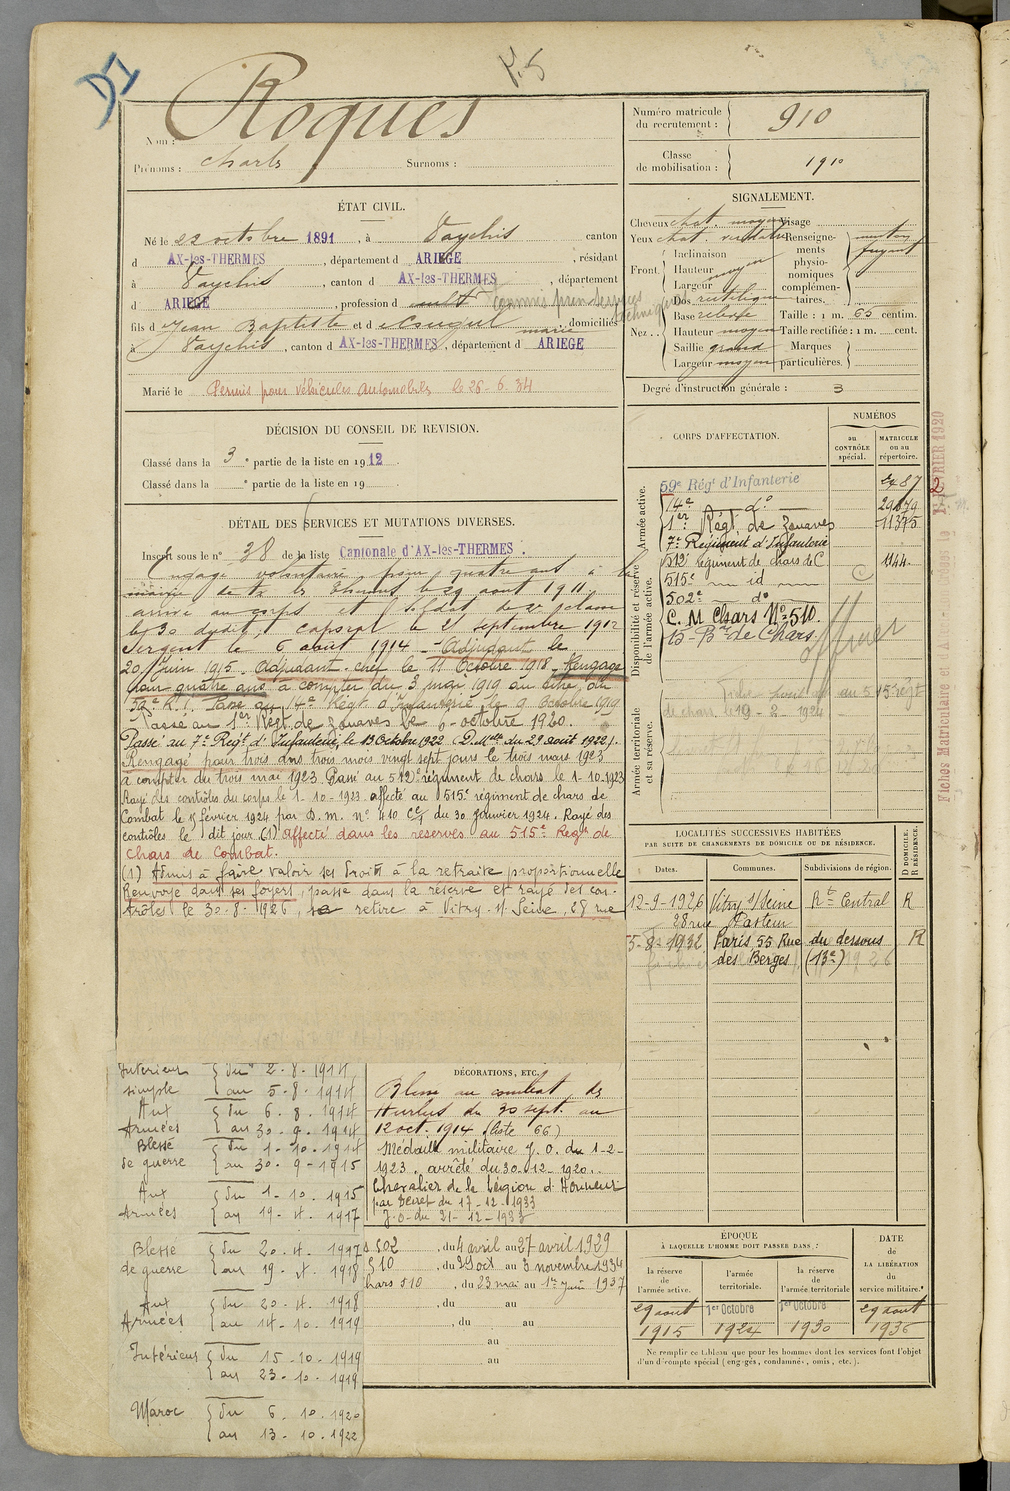 D1
P.S
Nom : Roques
Prénoms : Charles Surnoms :
Numéro matricule du recrutement : 910
Classe de mobilisation : 1910
ÉTAT CIVIL.
Né le 22 octobre 1891, à Vaychis, canton
d AX-les-THERMES, département d ARIEGE, résidant
à Vaychis, canton d AX-les-THERMES, département
d ARIEGE, profession d cult commis
fils d Jean Baptiste et d marie, domiciliés
à Vaychis, canton d AX-les-THERMES, département d ARIEGE
Marié le Permis pour véhicules automobiles le 25-6-34
SIGNALEMENT.
Cheveux chat. moyen Visage
Yeux chat.
Front. Inclinaison
Hauteur moyen
Largeur
Nez.. Dos rectiligne
Base relevée
Hauteur moyen
Saillie grand
Largeur moyen
Renseignements physionomiques complémentaires. menton fuyant
Taille : 1 m. 65 centim.
Taille rectifiée : 1 m. cent.
Marques particulières.
Degré d'instruction générale : 3
DÉCISION DU CONSEIL DE REVISION.
Classé dans la 3e partie de la liste en 1912.
Classé dans la e partie de la liste en 19
DÉTAIL DES SERVICES ET MUTATIONS DIVERSES.
Inscrit sous le n° 38 de la liste Cantonale d'AX-les-THERMES.
Engagé volontaire pour quatre ans à la
mairie de le 29 aout 1911.
arrivé au corps et soldat de 2e classe
le 30 dudit, caporal le 21 septembre 1912
Sergent le 6 août 1914 - Adjudant le
20 Juin 1915. Adjudant-chef le 11 Octobre 1918. Rengagé
pour quatre ans à compter du 3 mai 1919 au titre du
59e R.I. Passé au 14e Régt d'Infanterie le 9 Octobre 1919
Passé au 1er Régt de zouaves le 6 octobre 1920.
Passé au 7e Régt d'Infanterie, le 13 Octobre 1922 (D. Mlle du 29 août 1922).
Rengagé pour trois ans trois mois vingt sept jours le trois mars 1923
à compter du trois mai 1923. Passé au 512e régiment de chars le 1-10-1923
Rayé des contrôles du corps le 1-10-1923. affecté au 515e régiment de chars de
Combat le 15 février 1924 par D. m. n° 410 du 30 janvier 1924. Rayé des
contrôles le dit jour (1) affecté dans les réserves au 515e Régt de
Chars de Combat.
(1) Admis à faire valoir ses droits à la retraite proportionnelle
Renvoyé dans ses foyers, passé dans la réserve et rayé des con-
trôles le 30-8-1926, se retire à Vitry s/ Seine, 28 rue
CORPS D'AFFECTATION.
NUMÉROS
au CONTRÔLE spécial.
MATRICULE ou au répertoire.
Armée active.
59e Régt d'Infanterie 2487
14e do 29879
1er Régt. de Zouaves 11375
7e Régiment d'Infanterie
Disponibilité et réserve de l'armée active.
512e régiment de chars de C 1144.
515e id
502e do
C. M Chars No 510.
15e Bon de Chars.
officier
Armée territoriale et sa réserve.
au 515e régt
de chars le 19-2-1924
Fiches Matriculaire et FÉVRIER 1920
LOCALITÉS SUCCESSIVES HABITÉES
PAR SUITE DE CHANGEMENTS DE DOMICILE OU DE RÉSIDENCE.
Dates. Communes. Subdivisions de région. D DOMICILE. R RÉSIDENCE.
12-9-1926 Vitry s/ Seine Rt Central R
28 rue Pasteur
5-8-1932 Paris, 55 Rue du dessous R
des Berges (13e)
Intérieur simple du 2.8.1914
au 5-8-1914
Aux Armées du 6.8.1914
au 30.9.1914
Blessé de guerre du 1-10-1914
au 30.9-1915
Aux Armées du 1-10.1915
au 19-4.1917
Blessé de guerre du 20.4.1917
au 19-4.1918
Aux Armées du 20-4.1918
au 14-10.1919
Intérieur du 15-10-1919
au 23-10.1919
Maroc du 6.10.1920
au 13-10.1922
DÉCORATIONS, ETC.
Blessé au combat de
Hurlus du 30 sept. au
12 oct. 1914 (liste 66)
Médaille militaire J.O. du 1-2-
1923. arrêté du 30-12-1920.
Chevalier de la Légion d'Honneur
par Décret du 17-12-1933
J.O. du 21-12-1933
502, du 4 avril au 27 avril 1929
510, du 29 oct au 3 novembre 1934
chars 510, du 23 mai au 1er Juin 1937
, du au
, du au
au
au
ÉPOQUE
À LAQUELLE L'HOMME DOIT PASSER DANS :
la réserve de l'armée active. l'armée territoriale. la réserve de l'armée territoriale
DATE de LA LIBÉRATION du service militaire.*
29 aout 1915 1er Octobre 1924 1er Octobre 1930 29 aout 1936
Ne remplir ce tableau que pour les hommes dont les services font l'objet
d'un décompte spécial (engagés, condamnés, omis, etc.).